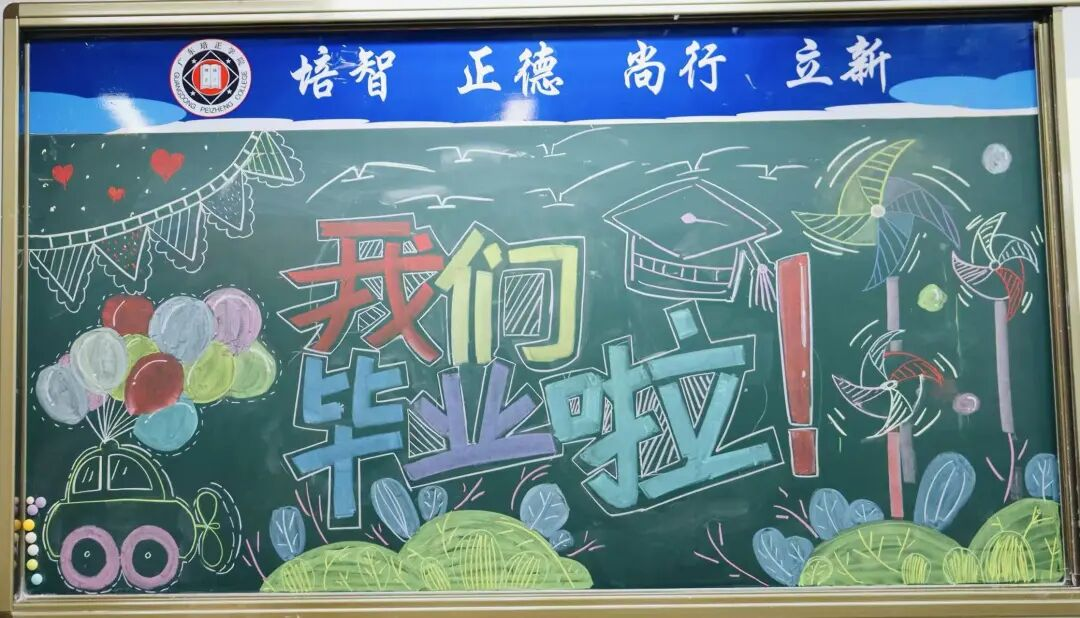 培智 正德 尚行 立新
广东培正学院
GUANGDONG PEIZHENG COLLEGE
我们
毕业啦！